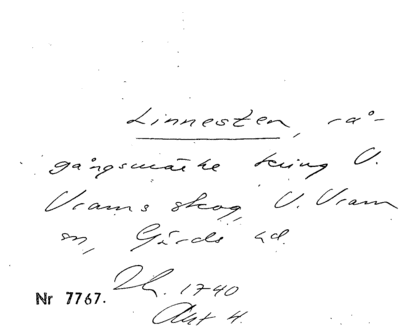 Linnesten, rå-
gångsmärke kring V.
Vrams skog, V. Vram
sn, Gärds hd.
Lh. 1740
Akt 4.
Nr 7767.